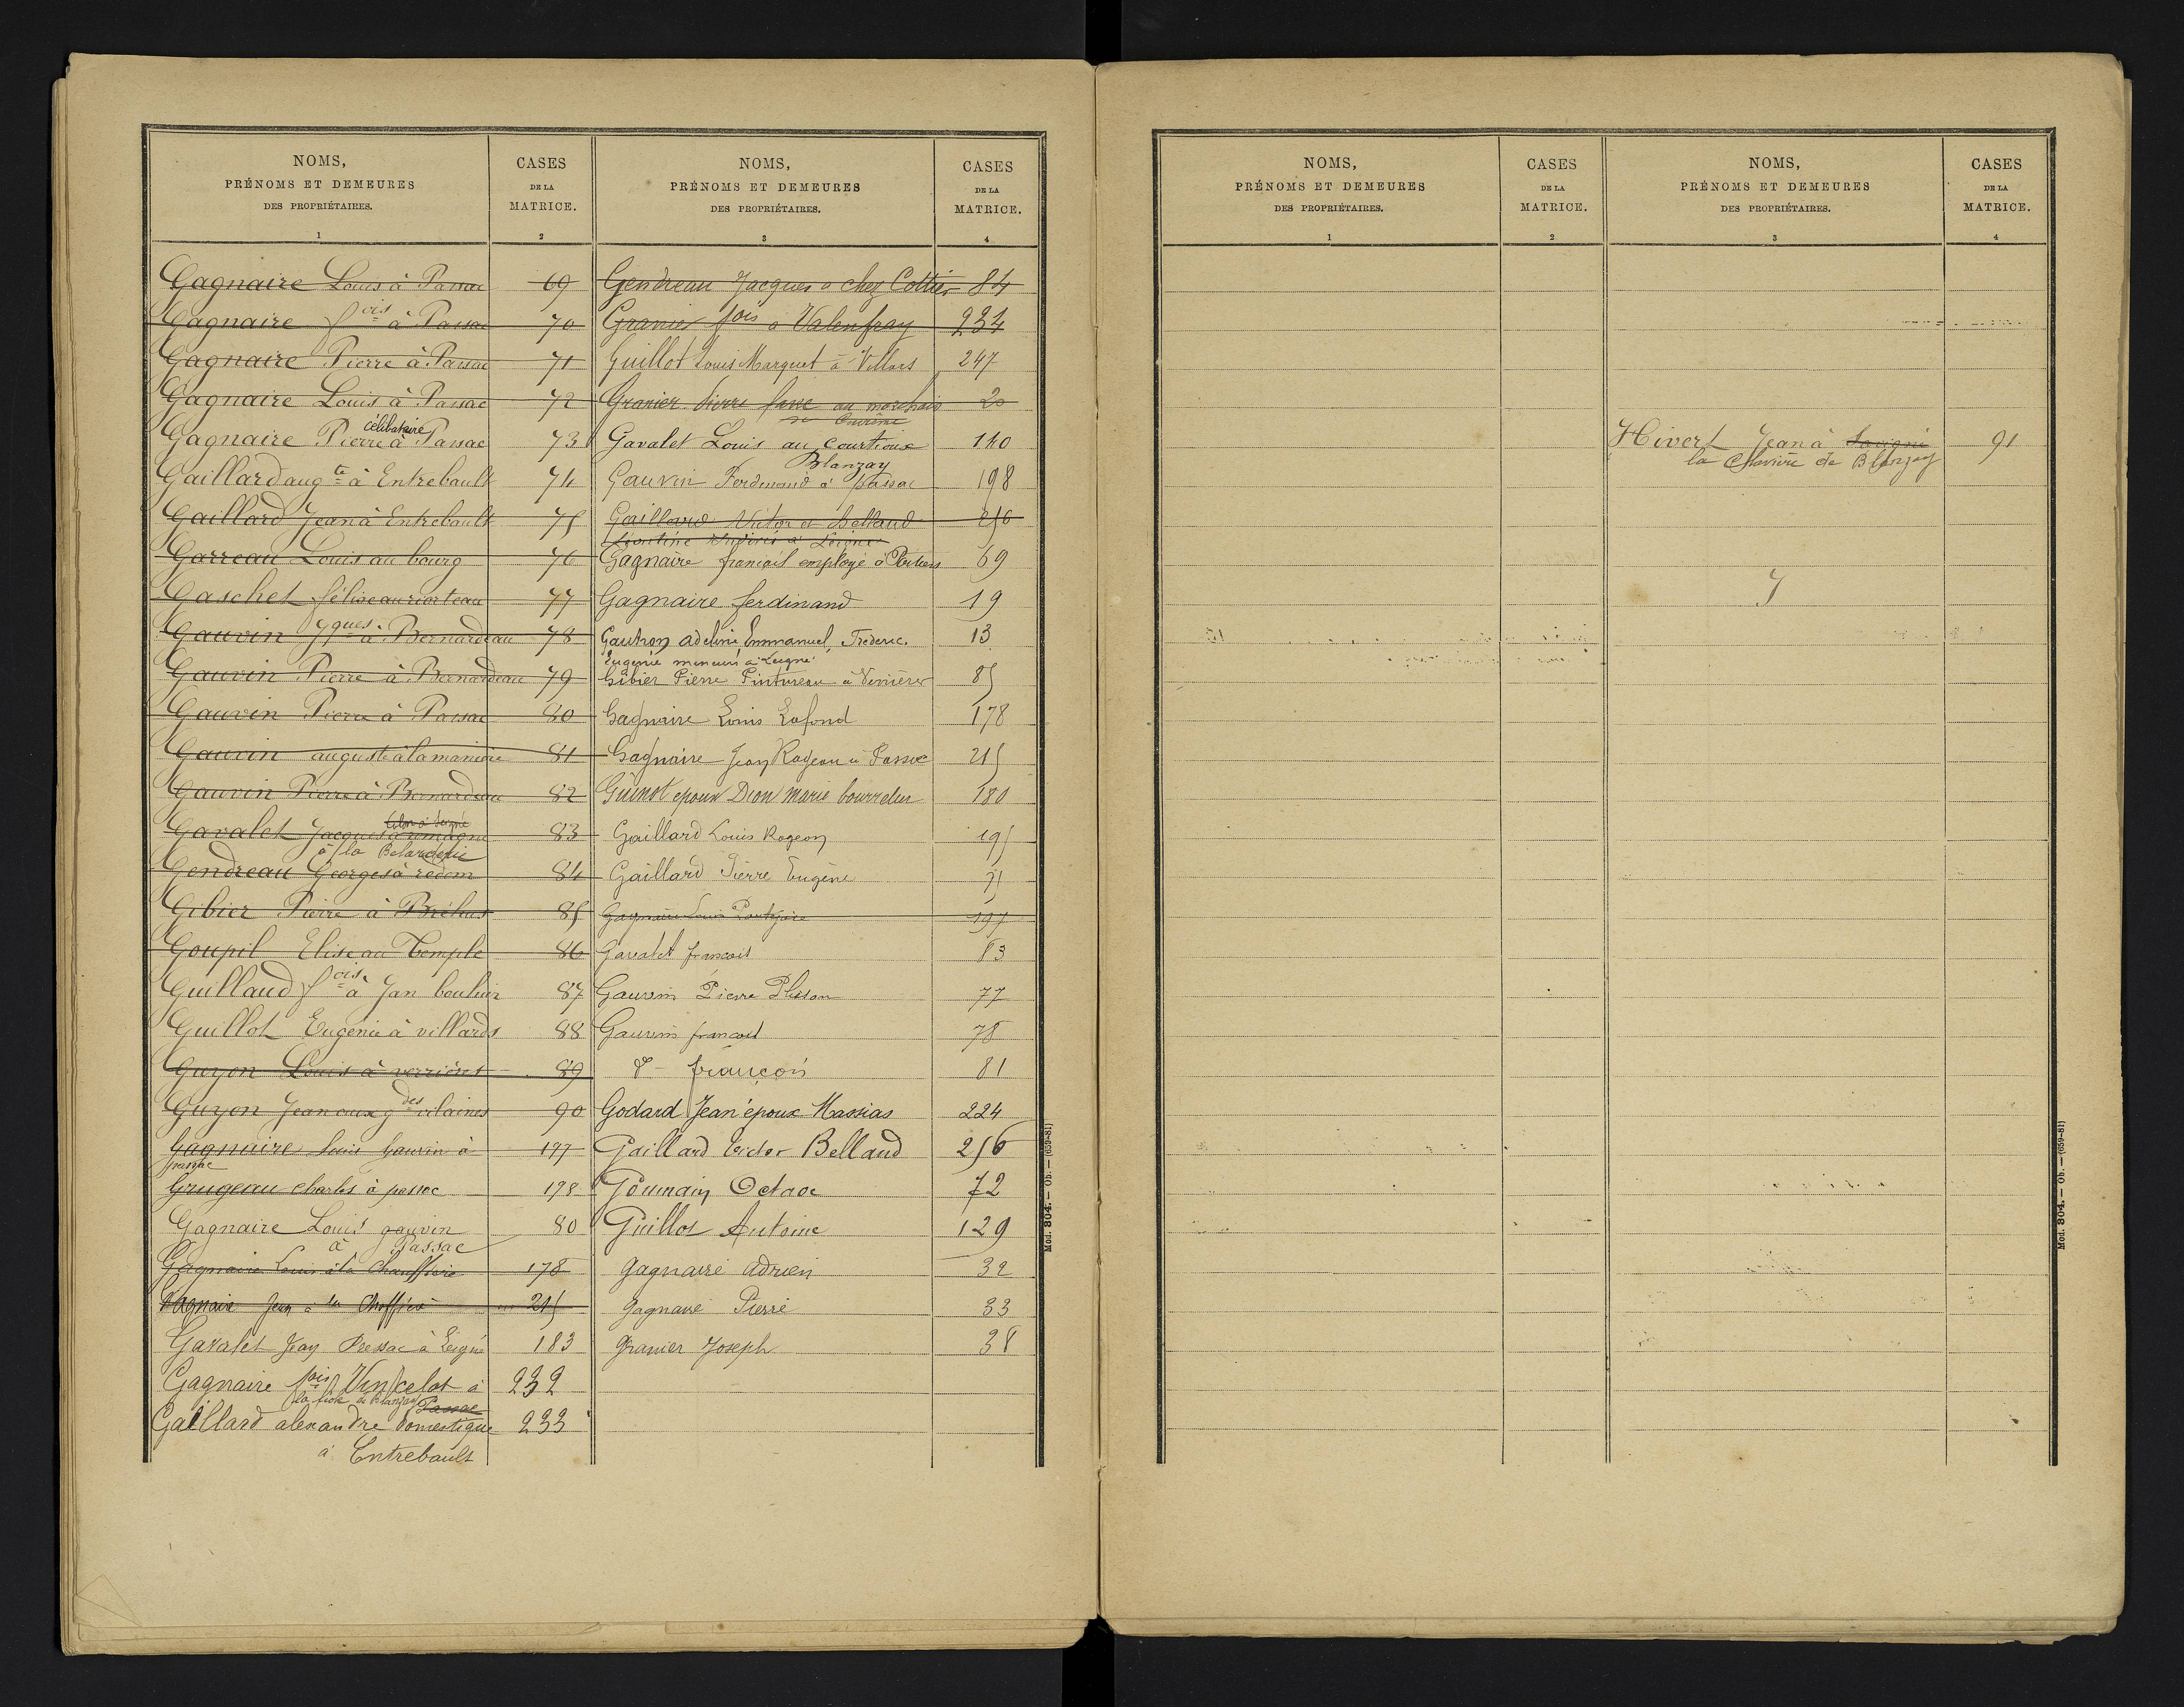 NOMS,
PRÉNOMS ET DEMEURES
DES PROPRIÉTAIRES.
1
CASES
DE LA
MATRICE.
2
Gagnaire Louis à Passac 69
Gagnaire fois à Passac 70
Gagnaire Pierre à Passac 71
Gagnaire Louis à Passac 72
célibataire
Gagnaire Pierre à Passac 73
Gaillard augte à Entrebault 74
Gaillard Jean à Entrebault 75
Garreau Louis au bourg 76
Gaschet 77
Gauvin Jques à Bernardeau 78
Gauvin Pierre à Bernardeau 79
Gauvin Pierre à Passac 80
Gauvin auguste à la 81
Gauvin Pierre à Bernardeau 82
Gavalet Jacques 83
à la
Gendreau Georges à 84
Gibier Pierre à 85
Goupil Elise au Temple 86
Guillaud fois à Jan 87
Guillot Eugénie à villards 88
Guyon Louis à verrières 89
Guyon Jean aux gdes vilaines 90
Gagnaire Louis Gauvin à 197
passac
Grugeau Charles à passac 198
Gagnaire Louis gauvin 80
à Passac
Gagnaire Louis à la 178
Gagnaire Jean à la 215
Gavalet Jean Pressac à Leigné 183
Gagnaire fois Vincelot à 232
de Blanzay Passac
Gaillard alexandre domestique 233
à Entrebault
NOMS,
PRÉNOMS ET DEMEURES
DES PROPRIÉTAIRES.
3
CASES
DE LA
MATRICE.
4
Gendreau Jacques à chez Cottier 84
Granier fois à Valenfray 234
Guillot Louis Marquet à Villars 247
Granier Pierre au 20
Gavalet Louis au courtioux 140
Blanzay
Gauvin Ferdinand à Passac 198
Gaillard Victor et Belland 256
Gagnaire françois employé à Poitiers 69
Gagnaire ferdinand 19
Gautron adeline Emmanuel, Frederic 13
Eugénie mineurs à Leigné
Gibier Pierre Pintureau à Verrières 85
Gagnaire Louis Lafond 178
Gagnaire Jean Rageau à Passac 215
Guinot epoux Dion marie 180
Gaillard Louis Rogeon 195
Gaillard Pierre Eugène
Gagnaire Louis 197
Gavalet francois 83
Gauvin Pierre Plisson 77
Gauvin francois 78
d° françois 81
Godard Jean époux Massias 224
Gaillard Victor Belland 256
Goumain Octave 72
Guillot Antoine 129
Gagnaire Adrien 32
Gagnaire Pierre 33
Granier Joseph 38
Mod. 804. — Ob. — (659-81)
NOMS,
PRÉNOMS ET DEMEURES
DES PROPRIÉTAIRES.
1
CASES
DE LA
MATRICE.
2
NOMS,
PRÉNOMS ET DEMEURES
DES PROPRIÉTAIRES.
3
CASES
DE LA
MATRICE.
4
Hivert Jean à Savigné 91
la de Blanzay
J
Mod. 804. — Ob. — (659-81)